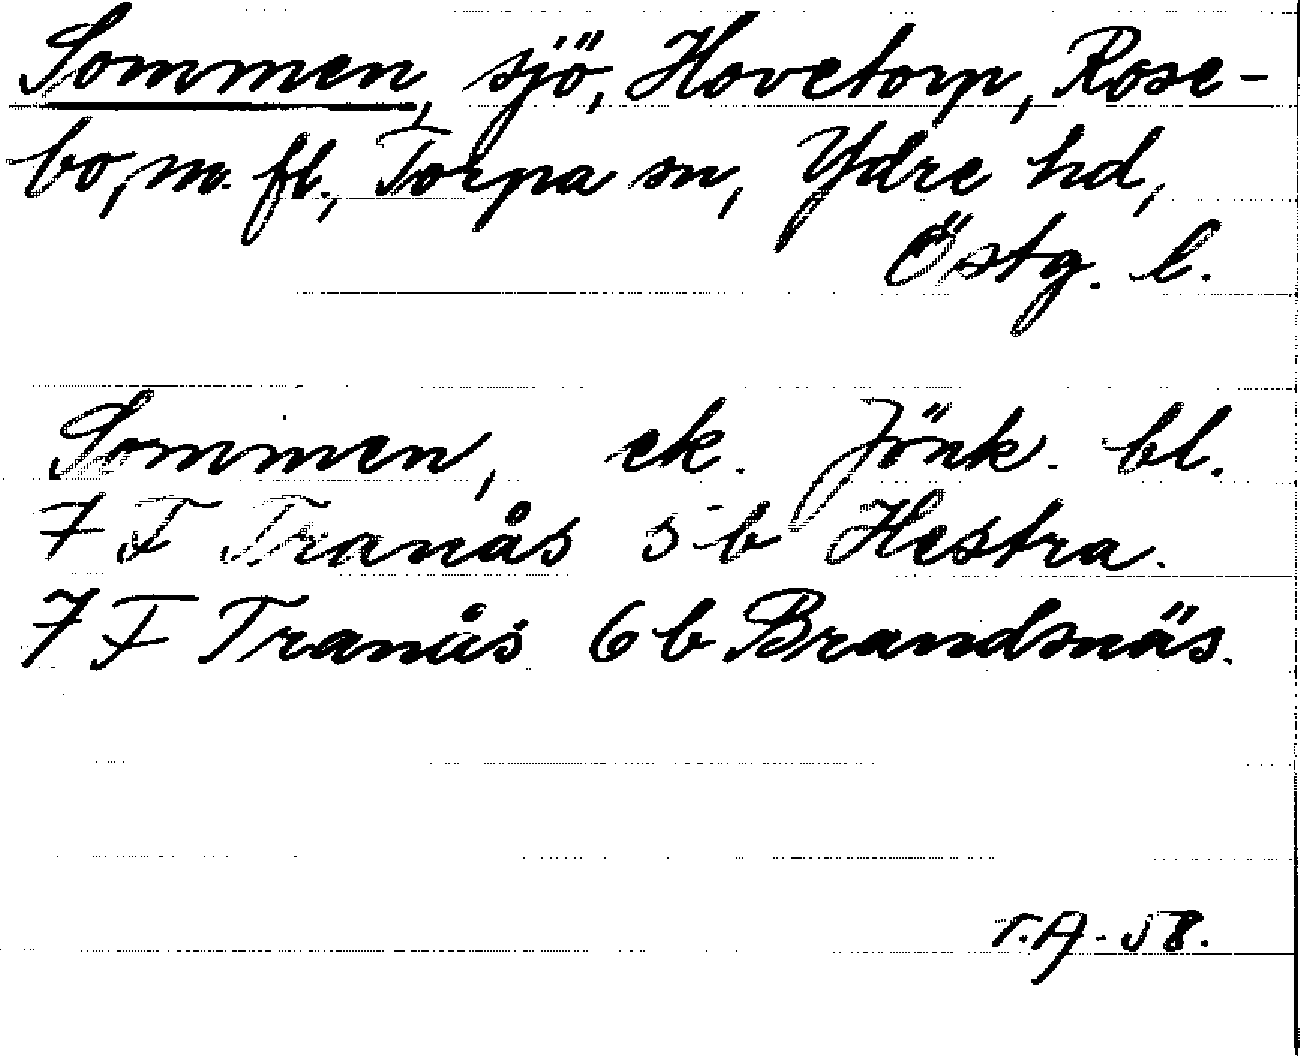 Sommen, sjö, Hovetorp, Rose-
bo, m. fl., Torpa sn, Ydre hd,
Östg. l.
Sommen, ek. Jönk. bl.
7 F Tranås 5 b Hestra.
7 F Tranås 6 b Brandsnäs.
T.A. - 58.